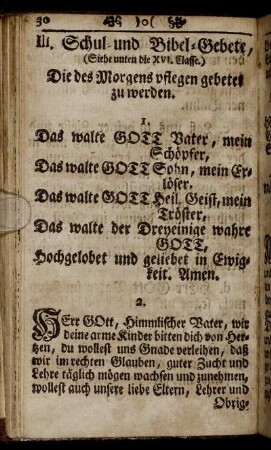 30 )o(
III. Schul- und Bibel-Gebete,
(Siehe unten die XVI. Classe.)
Die des Morgens pflegen gebetet
zu werden.
1.
Das walte GOTT Vater, mein
Schöpfer,
Das walte GOTT Sohn, mein Er-
löser,
Das walte GOTT Heil. Geist, mein
Tröster,
Das walte der Dreyeinige wahre
GOTT,
Hochgelobet und geliebet in Ewig-
keit. Amen.
2.
HErr GOtt, Himmlischer Vater, wir
deine arme Kinder bitten dich von Her-
tzen, du wollest uns Gnade verleihen, daß
wir im rechten Glauben, guter Zucht und
Lehre täglich mögen wachsen und zunehmen,
wollest auch unsere liebe Eltern, Lehrer und
Obrig-